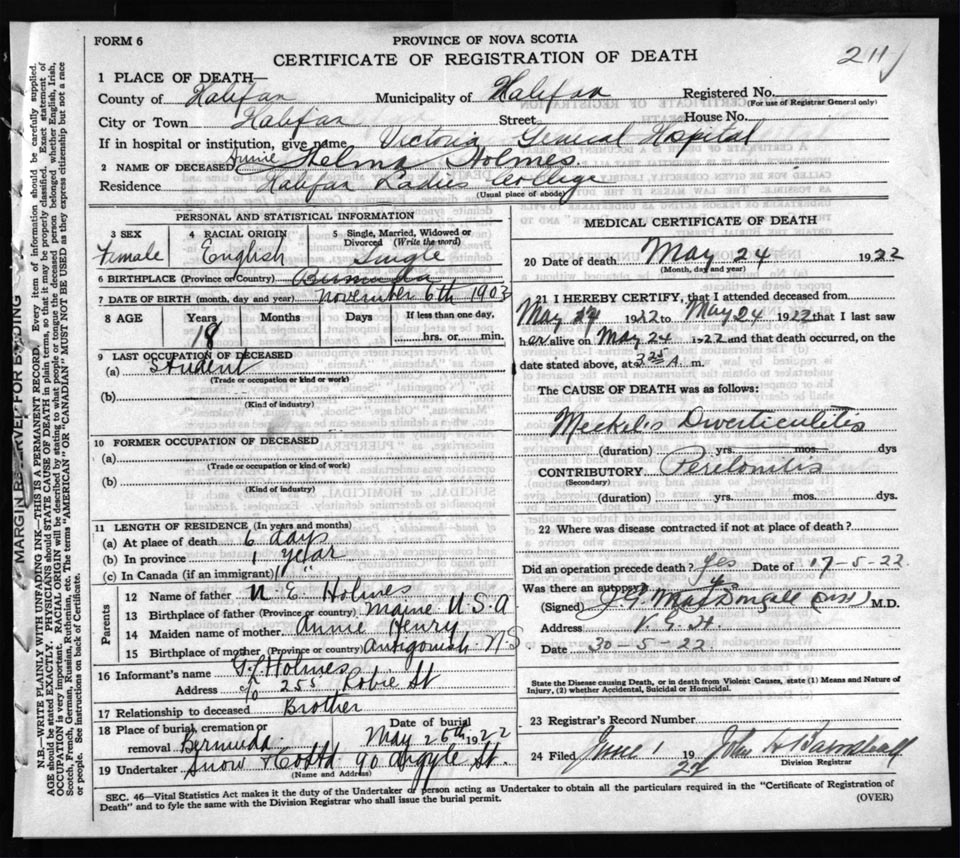 FORM 6
PROVINCE OF NOVA SCOTIA
CERTIFICATE OF REGISTRATION OF DEATH
211
1 PLACE OF DEATH—
County of Halifax Municipality of Halifax Registered No.
(For use of Registrar General only)
City or Town Halifax Street House No.
If in hospital or institution, give name Victoria General Hospital
2 NAME OF DECEASED Annie Thelma Holmes.
Residence Halifax Ladies College
(Usual place of abode)
PERSONAL AND STATISTICAL INFORMATION
3 SEX 4 RACIAL ORIGIN 5 Single, Married, Widowed or Divorced (Write the word)
Female English Single
6 BIRTHPLACE (Province or Country) Bermuda
7 DATE OF BIRTH (month, day and year) November 6th 1903
8 AGE Years Months Days If less than one day,
18 hrs. or min.
9 LAST OCCUPATION OF DECEASED
(a) Student
(Trade or occupation or kind or work)
(b)
(Kind of industry)
10 FORMER OCCUPATION OF DECEASED
(a)
(Trade or occupation or kind of work)
(b)
(Kind of industry)
11 LENGTH OF RESIDENCE (In years and months)
(a) At place of death 6 days
(b) In province 1 year
(c) In Canada (if an immigrant) 1 "
Parents
12 Name of father N. E. Holmes
13 Birthplace of father (Province or country) Maine U.S.A
14 Maiden name of mother Annie Henry
15 Birthplace of mother (Province or country) Antigonish N S
16 Informant's name Holmes
Address c/o 255 Robie St
17 Relationship to deceased Brother
18 Place of burial, cremation or removal Bermuda Date of burial May 26th 1922
19 Undertaker Snow & Co Ltd 90 Argyle St.
(Name and Address)
MEDICAL CERTIFICATE OF DEATH
20 Date of death May 24 1922
(Month, day and year)
21 I HEREBY CERTIFY, that I attended deceased from
May 1922 to May 24 1922 that I last saw
her alive on May 24 1922 and that death occurred, on
date stated above, at 3 25 A. m.
The CAUSE OF DEATH was as follows:
Meckel's Diverticulitis
(duration) yrs. mos. dys
CONTRIBUTORY Peritonitis
(Secondary)
(duration) yrs. mos. dys.
22 Where was disease contracted if not at place of death?
Did an operation precede death? Yes Date of 17-5-22.
Was there an autopsy? yes
(Signed) MacDougall M.D.
Address V. G. H.
Date 30-5-22.
State the Disease causing Death, or in death from Violent Causes, state (1) Means and Nature of Injury, (2) whether Accidental, Suicidal or Homicidal.
23 Registrar's Record Number
24 Filed June 1 1922 John
Division Registrar
SEC. 46—Vital Statistics Act makes it the duty of the Undertaker or person acting as Undertaker to obtain all the particulars required in the "Certificate of Registration of
Death" and to fyle the same with the Division Registrar who shall issue the burial permit.
(OVER)
MARGIN RESERVED FOR BINDING
N.B—WRITE PLAINLY WITH UNFADING INK—THIS IS A PERMANENT RECORD. Every item of information should be carefully supplied.
AGE should be stated EXACTLY. PHYSICIANS should STATE CAUSE OF DEATH in plain terms, so that it may be properly classified. Exact statement of
OCCUPATION is very important. RACIAL ORIGIN will be described by stating to what people or tongue the deceased person belonged whether English, Irish,
Scotch, French, German, Russian, Ruthenian, etc. The terms "AMERICAN" OR "CANADIAN" MUST NOT BE USED as they express citizenship but not a race
or people. See instructions on back of Certificate.